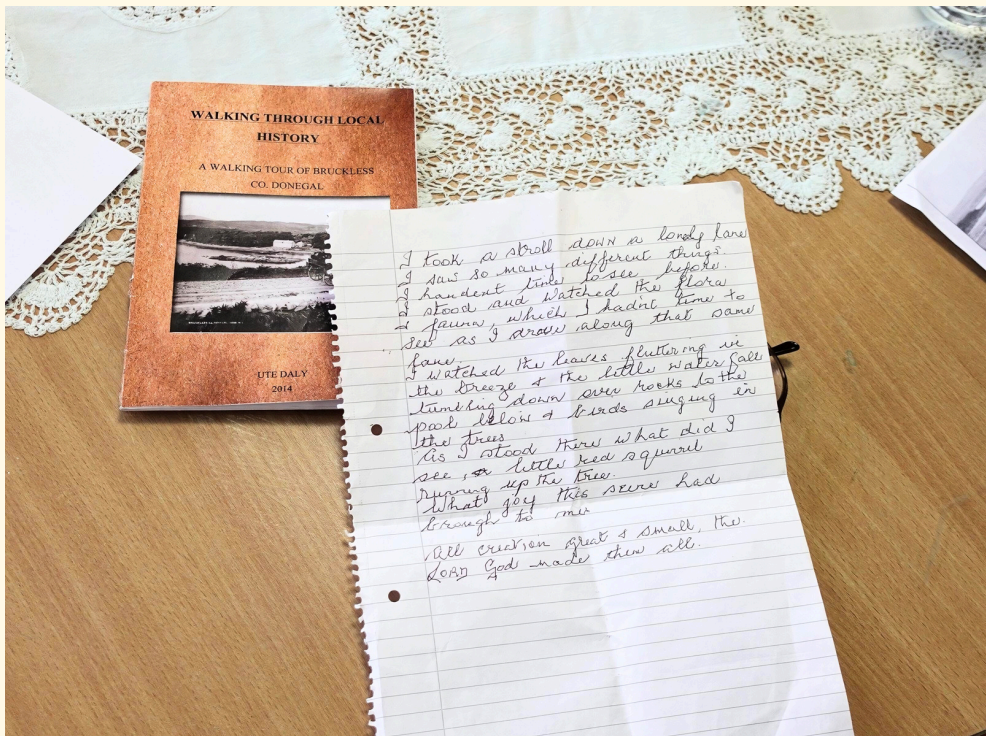 WALKING THROUGH LOCAL
HISTORY
A WALKING TOUR OF BRUCKLESS
CO. DONEGAL
UTE DALY
2014
I took a stroll down a lonely lane
I saw so many different things.
I handent time to see before.
I stood and watched the flora
& fauna, which I hadn't time to
see as I drove along that same
lane.
I watched the leaves fluttering in
the breeze & the little water fall
tumbling down over rocks to the
pool below & birds singing in
the trees
As I stood there what did I
see, a little red squirrel
running up the tree.
What joy this scene had
brough to me
All creation great & small, the.
LORD God made them all.